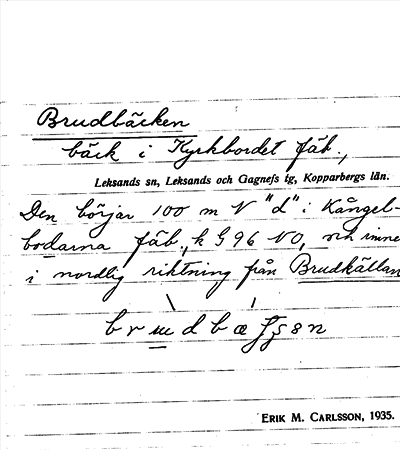 Brudbäcken
bäck i Kyrkbordet fäb.,
Leksands sn, Leksands och Gagnefs tg, Kopparbergs län.
Den börjar 100 m V "d" i Kångel-
bodarna fäb., k G 96 NO, och
i nordlig riktning från Brudkällan
ERIK M. CARLSSON, 1935.